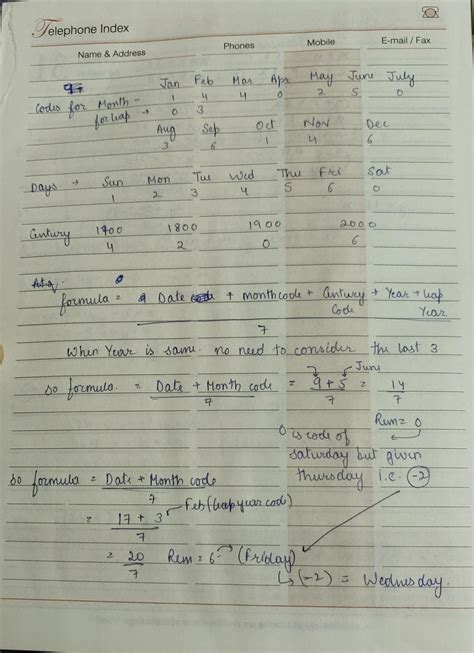 Telephone Index
Name & Address Phones Mobile E-mail / Fax
Jan Feb Mar Apr May June July
Codes for Month - 1 4 4 0 2 5 0
for leap → 0 3
Aug Sep Oct Nov Dec
3 6 1 4 6
Days → Sun Mon Tue Wed Thu Fri Sat
1 2 3 4 5 6 0
Century 1700 1800 1900 2000
4 2 0 6
formula = Date + month code + Century + Year + leap
Code Year
7
When Year is same. no need to consider the last 3
June
so formula = Date + Month code = 9 + 5 = 14
7 7 7
Rem = 0
0 is code of
saturday but given
thursday i.e. -2
so formula = Date + Month code
7
= 17 + 3 Feb (leap year code)
7
= 20 Rem = 6 → (Friday)
7
↳ (-2) = Wednesday.